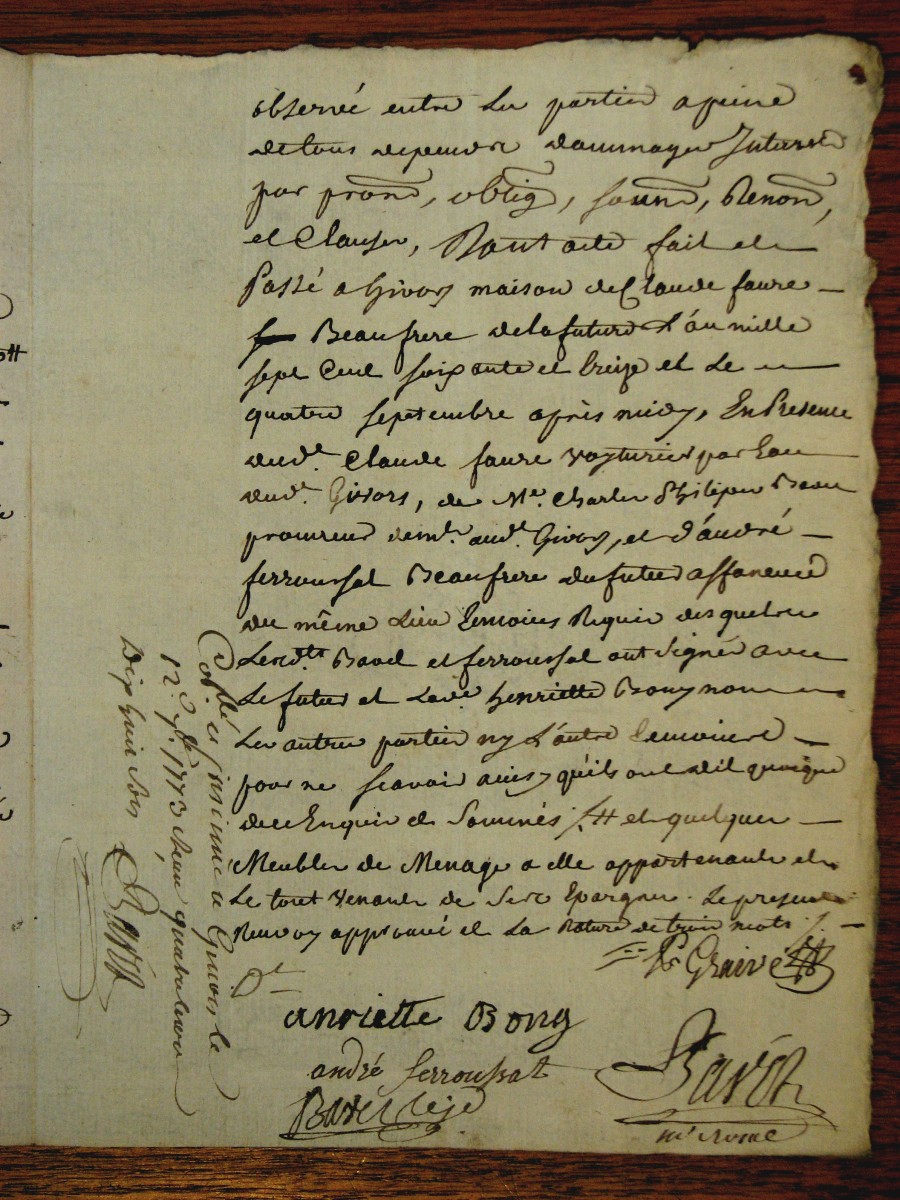 observé entre les parties a peine
de tous depends dommages Interets
par prom., oblig, soum, Renon,
et Clauses, Dont acte fait et
Passé a Givors maison de Claude faure
Beaufrere de la future L'an mille
sept Cent soixante et treize et Le
quatre septembre après midy, En Presence
dud. Claude faure voyturier par Eau
dud. Givors, de Me. Charles Philipes
procureur demt. aud. Givors, et d'andré
ferroussat Beaufrere du futur affaneur
du même Lieu temoins Requis desquels
Lesdts Bavel et ferroussat ont signé avec
Le futur et Lade. henriette Bony non
Les autres parties ny L'autre temoins
pour ne scavoir ainsy qu'ils ont dit quoique
de ce Enquis et Sommés /. tt et quelques
Meubles de Menage a elle appartenants et
Le tout venants de Ses Epargnes. Le present
Renvoy approuvé et La Rature de trois mots /.
Graive
Dt
anriette Bony
andré ferroussat
Bavel
Bavot
nre Royal
Collé et insinué a Givors le
12e. 7bre. 1773 Reçu quatre
Dix huit sols Bavot